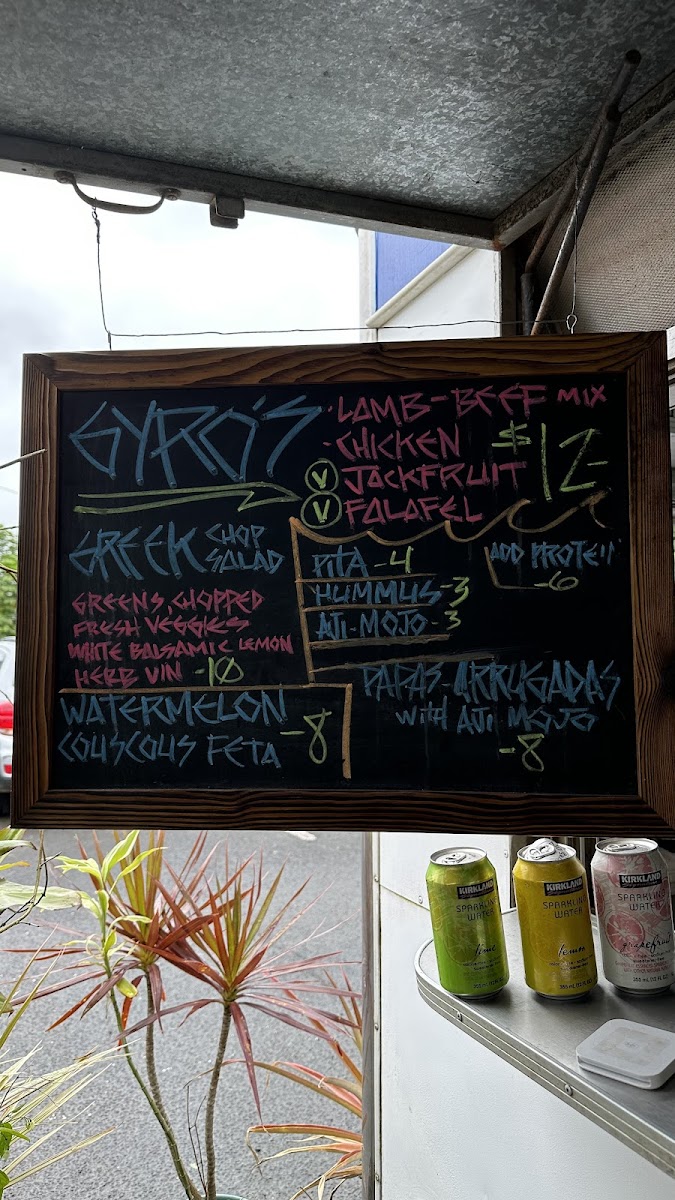 GYRO'S
· LAMB-BEEF MIX
· CHICKEN $12-
V JACKFRUIT
V FALAFEL
GREEK CHOP SALAD
GREENS, CHOPPED
FRESH VEGGIES
WHITE BALSAMIC LEMON
HERB VIN -10
PITA -4
HUMMUS -3
AJI-MOJO -3
ADD PROTEIN
-6
WATERMELON
COUSCOUS FETA -8
PAPAS-ARRUGADAS
WITH AJI MOJO
-8
KIRKLAND
SPARKLING
WATER
lime
KIRKLAND
SPARKLING
WATER
lemon
KIRKLAND
SPARKLING
WATER
grapefruit